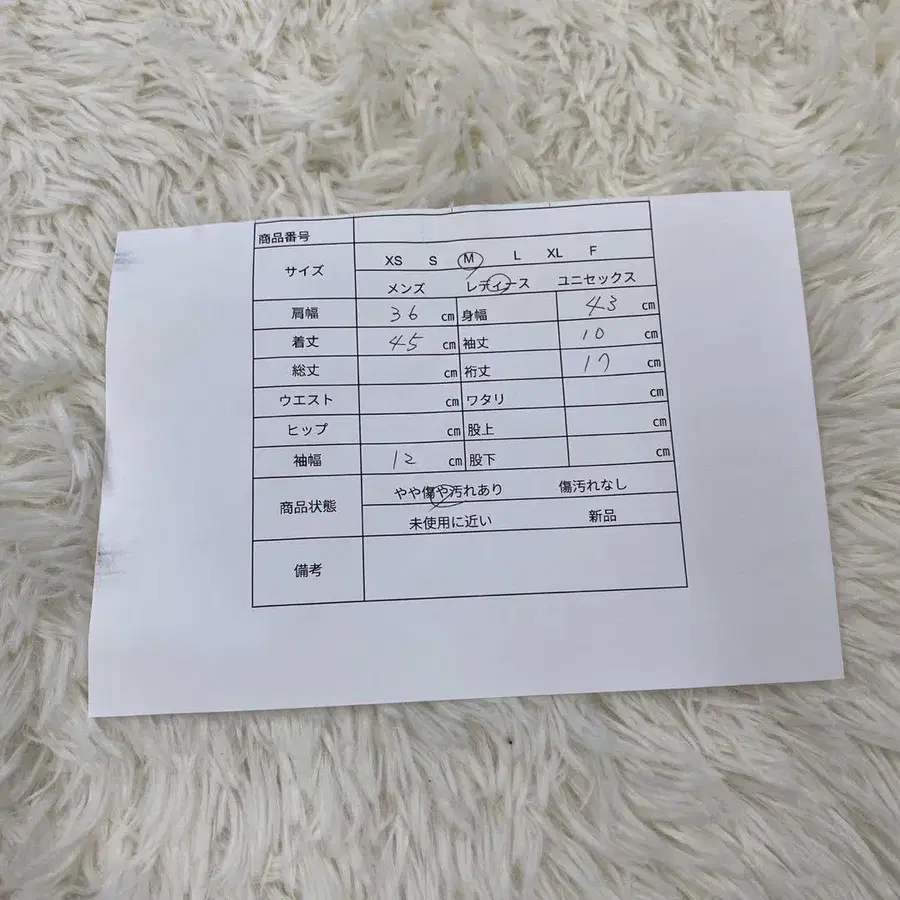 商品番号
サイズ XS S M L XL F
メンズ レディース ユニセックス
肩幅 36 cm 身幅 43 cm
着丈 45 cm 袖丈 10 cm
総丈 cm 裄丈 17 cm
ウエスト cm ワタリ cm
ヒップ cm 股上 cm
袖幅 12 cm 股下 cm
商品状態 やや傷や汚れあり 傷汚れなし
未使用に近い 新品
備考